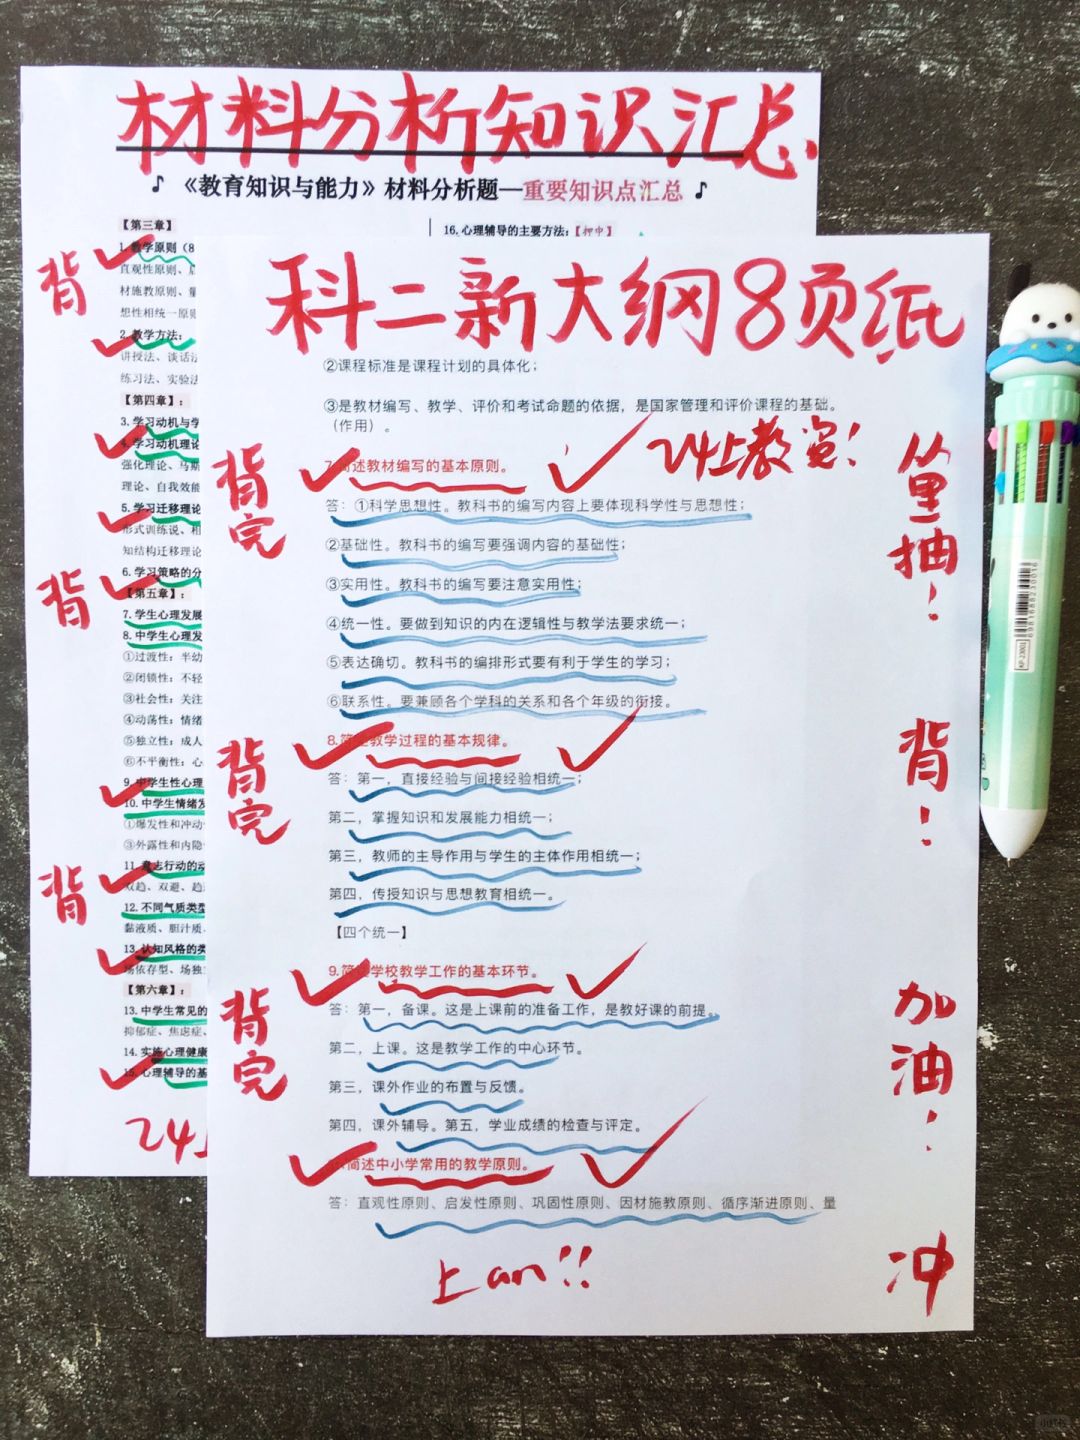 材料分析知识汇总
♪ 《教育知识与能力》材料分析题—重要知识点汇总 ♪
【第三章】
1.教学原则（8
直观性原则、启
材施教原则、量
想性相统一原则
2.教学方法：
讲授法、谈话法
练习法、实验法
【第四章】：
3.学习动机与学
4.学习动机理论
强化理论、马斯
理论、自我效能
5.学习迁移理论
形式训练说、相
知结构迁移理论
6.学习策略的分
【第五章】：
7.学生心理发展
8.中学生心理发
①过渡性：半幼
②闭锁性：不轻
③社会性：关注
④动荡性：情绪
⑤独立性：成人
⑥不平衡性：心
9.中学生性心理
10.中学生情绪发
①爆发性和冲动
③外露性和内隐
11.意志行动的动
双趋、双避、趋
12.不同气质类型
黏液质、胆汁质
13.认知风格的类
场依存型、场独
【第六章】：
13.中学生常见的
抑郁症、焦虑症、
14.实施心理健康
15.心理辅导的基
16.心理辅导的主要方法：【押中】
背
背
背
24上
科二新大纲8页纸
②课程标准是课程计划的具体化；
③是教材编写、教学、评价和考试命题的依据，是国家管理和评价课程的基础。
（作用）。
24上教资！
7.简述教材编写的基本原则。
答：①科学思想性。教科书的编写内容上要体现科学性与思想性；
②基础性。教科书的编写要强调内容的基础性；
③实用性。教科书的编写要注意实用性；
④统一性。要做到知识的内在逻辑性与教学法要求统一；
⑤表达确切。教科书的编排形式要有利于学生的学习；
⑥联系性。要兼顾各个学科的关系和各个年级的衔接。
8.简述教学过程的基本规律。
答：第一，直接经验与间接经验相统一；
第二，掌握知识和发展能力相统一；
第三，教师的主导作用与学生的主体作用相统一；
第四，传授知识与思想教育相统一。
【四个统一】
9.简述学校教学工作的基本环节。
答：第一，备课。这是上课前的准备工作，是教好课的前提。
第二，上课。这是教学工作的中心环节。
第三，课外作业的布置与反馈。
第四，课外辅导。第五，学业成绩的检查与评定。
简述中小学常用的教学原则。
答：直观性原则、启发性原则、巩固性原则、因材施教原则、循序渐进原则、量
背完
背完
背完
抽！
背！
加油！
冲
上an！！
KP-23001
6981688230016
小红书